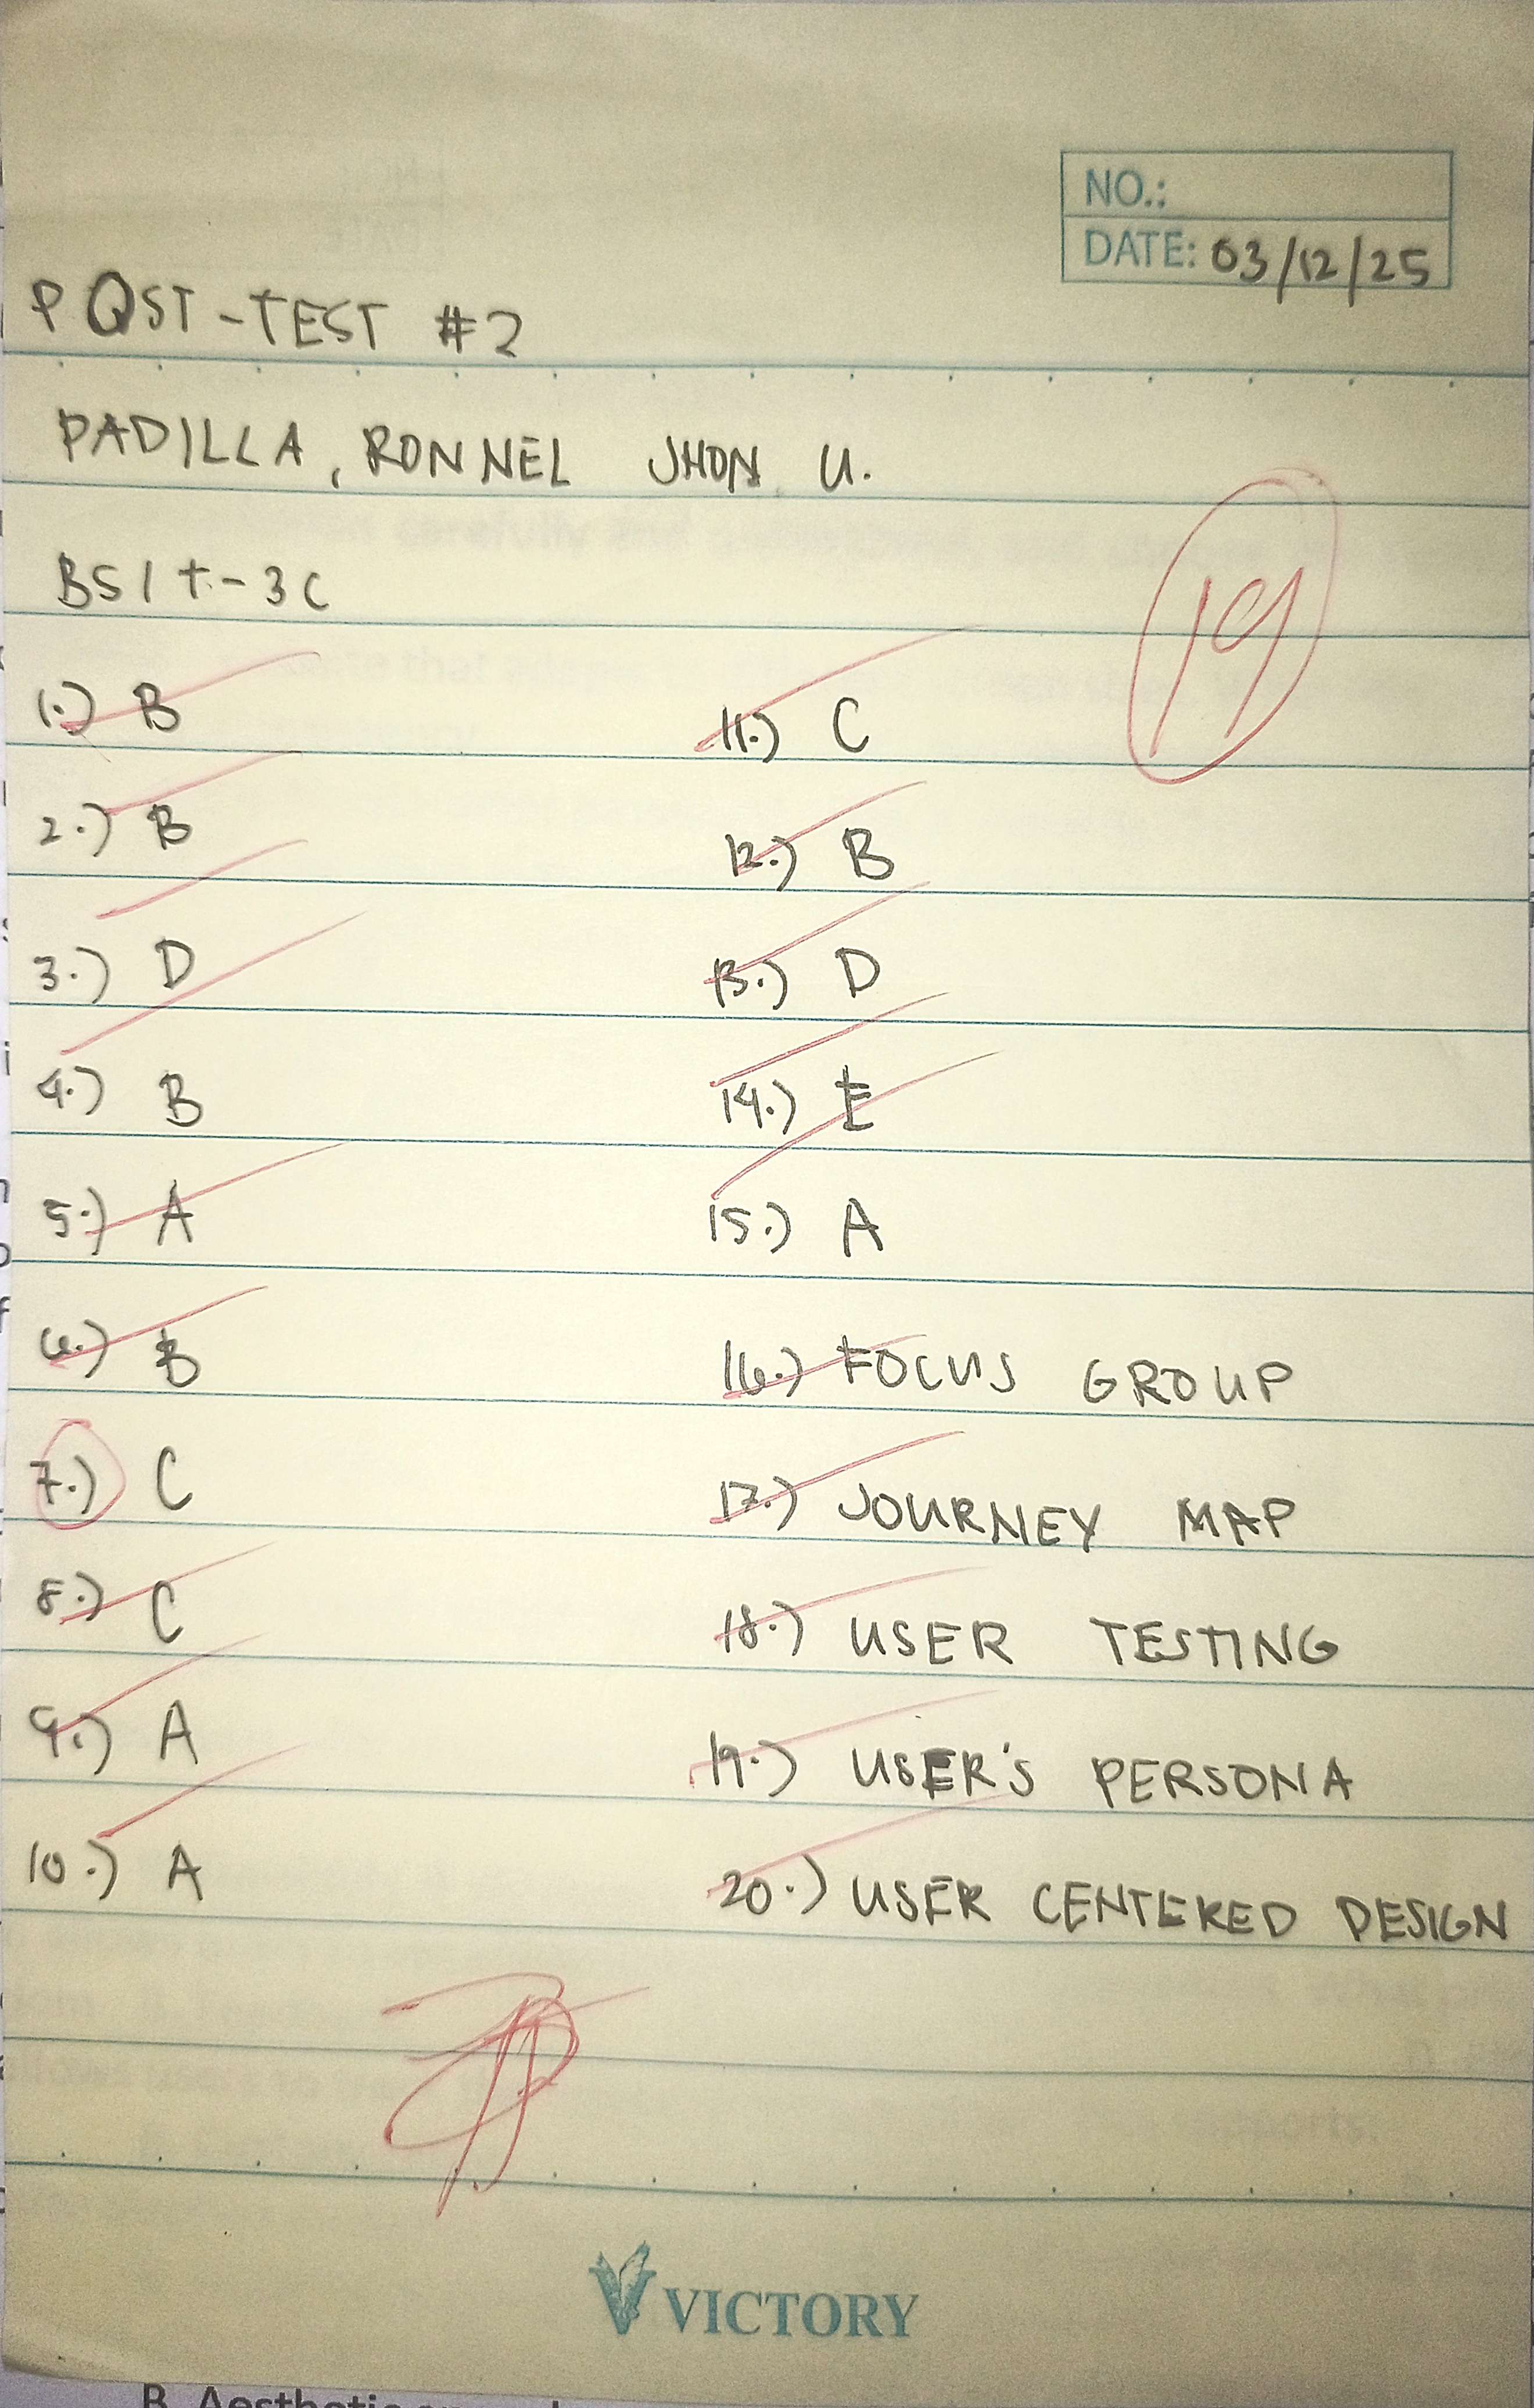 NO.:
DATE: 03/12/25
POST-TEST #2
PADILLA, RONNEL JHON U.
BSIT-3C
19
1.) B
2.) B
3.) D
4.) B
5.) A
6.) B
7.) C
8.) C
9.) A
10.) A
11.) C
12.) B
13.) D
14.) E
15.) A
16.) FOCUS GROUP
17.) JOURNEY MAP
18.) USER TESTING
19.) USER'S PERSONA
20.) USER CENTERED DESIGN
VICTORY
B. Aesthetic